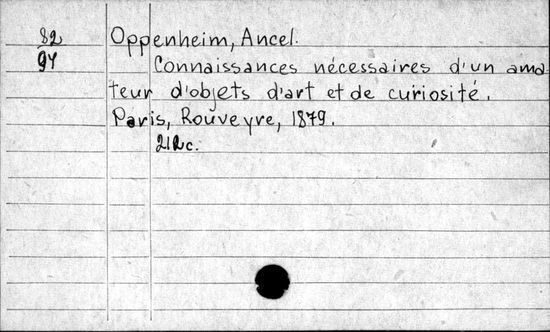 82
94
Oppenheim, Ancel.
Connaissances nécessaires d'un ama-
teur d'objets d'art et de curiosité.
Paris, Rouveyre, 1879.
212c.